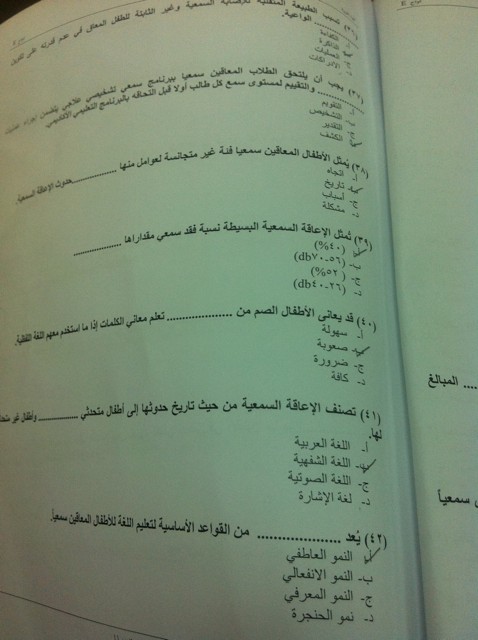 (٣٦) تسبب الطبيعة المتقلبة للإصابة السمعية وغير الثابتة للطفل المعاق في عدم قدرته على تكوين
.......... الواعية.
أ- الكفاءة
ب- الذاكرة
ج- العمليات
د- الإدراكات
(٣٧) يجب أن يلتحق الطلاب المعاقين سمعيا ببرنامج سمعي تشخيصي علاجي يتضمن إجراء
.......... والتقييم لمستوى سمع كل طالب أولا قبل التحاقه بالبرنامج التعليمي الأكاديمي.
أ- التقويم
ب- التشخيص
ج- التقدير
د- الكشف
(٣٨) يُمثل الأطفال المعاقين سمعيا فئة غير متجانسة لعوامل منها ..........حدوث الإعاقة السمعية.
أ- اتجاه
ب- تاريخ
ج- أسباب
د- مشكلة
(٣٩) تُمثل الإعاقة السمعية البسيطة نسبة فقد سمعي مقدارها ..........
أ- (٤٠%)
ب- (٥٦-٧٠db)
ج- (٥٢%)
د- (٢٦-٤٠db)
(٤٠) قد يعانى الأطفال الصم من .......... تعلم معاني الكلمات إذا ما استخدم معهم اللغة اللفظية.
أ- سهولة
ب- صعوبة
ج- ضرورة
د- كافة
(٤١) تصنف الإعاقة السمعية من حيث تاريخ حدوثها إلى أطفال متحدثي .......... وأطفال غير
لها.
أ- اللغة العربية
ب- اللغة الشفهية
ج- اللغة الصوتية
د- لغة الإشارة
(٤٢) يُعد .......... من القواعد الأساسية لتعليم اللغة للأطفال المعاقين سمعياً.
أ- النمو العاطفي
ب- النمو الانفعالي
ج- النمو المعرفي
د- نمو الحنجرة
.... المبالغ
سمعياً